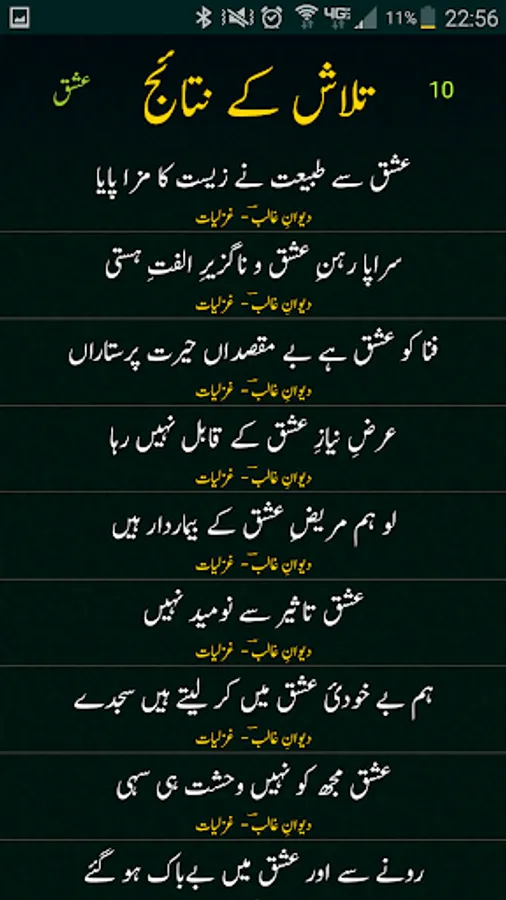 11% 22:56
عشق تلاش کے نتائج 10
عشق سے طبیعت نے زیست کا مزا پایا
دیوانِ غالبؔ - غزلیات
سراپا رہنِ عشق و ناگزیرِ الفتِ ہستی
دیوانِ غالبؔ - غزلیات
فنا کو عشق ہے بے مقصداں حیرت پرستاراں
دیوانِ غالبؔ - غزلیات
عرضِ نیازِ عشق کے قابل نہیں رہا
دیوانِ غالبؔ - غزلیات
لو ہم مریضِ عشق کے بیماردار ہیں
دیوانِ غالبؔ - غزلیات
عشق تاثیر سے نومید نہیں
دیوانِ غالبؔ - غزلیات
ہم بے خودئ عشق میں کر لیتے ہیں سجدے
دیوانِ غالبؔ - غزلیات
عشق مجھ کو نہیں وحشت ہی سہی
دیوانِ غالبؔ - غزلیات
رونے سے اور عشق میں بےباک ہو گئے